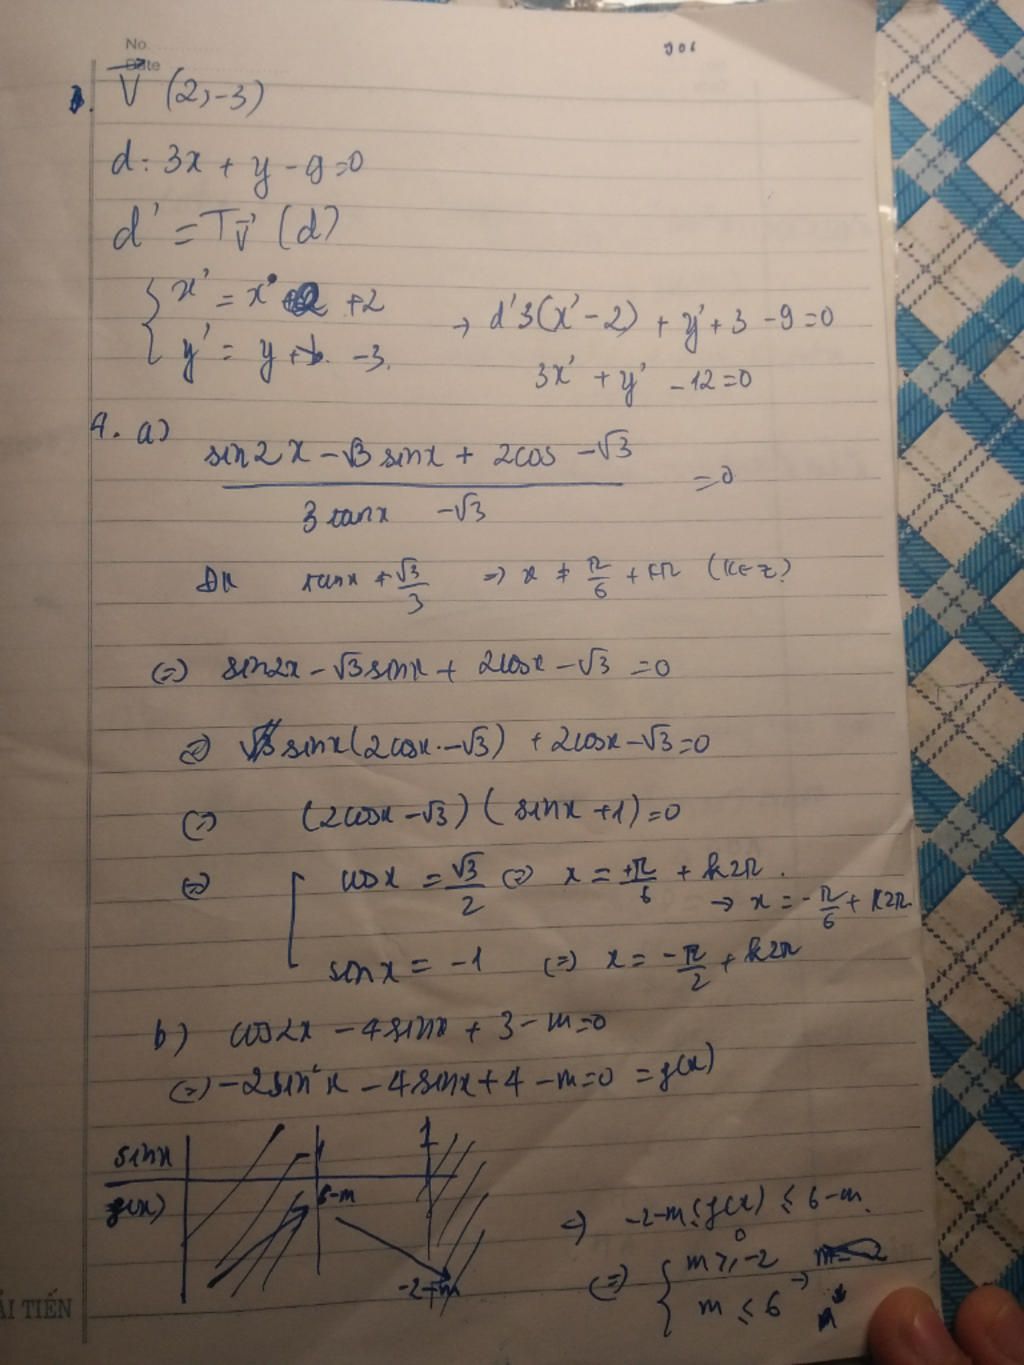 No.
306
Date
3. V⃗ (2,-3)
d: 3x + y - 9 = 0
d' = Tv⃗ (d)
{ x' = x +2
{ y' = y -3.
→ d' 3(x'-2) + y' + 3 - 9 = 0
3x' + y' - 12 = 0
4. a)
sin2x - √3 sinx + 2cos - √3
= 0
3 tanx - √3
ĐK tanx ≠ √3/3 => x ≠ π/6 + kπ (k∈Z)
(=) sin2x - √3sinx + 2cosx - √3 = 0
(=) sinx(2cosx - √3) + 2cosx - √3 = 0
(=) (2cosx - √3) (sinx + 1) = 0
(=) [ cosx = √3/2 (=) x = ±π/6 + k2π.
→ x = -π/6 + k2π
sinx = -1 (=) x = -π/2 + k2π
b) cos2x - 4sinx + 3 - m = 0
(=) -2sin²x - 4sinx + 4 - m = 0 = g(x)
sinx -1 1
g(x) 6-m -2-m
=) -2-m ≤ g(x) ≤ 6-m.
0
(=) { m ≥ -2
m ≤ 6 →
ẢI TIẾN